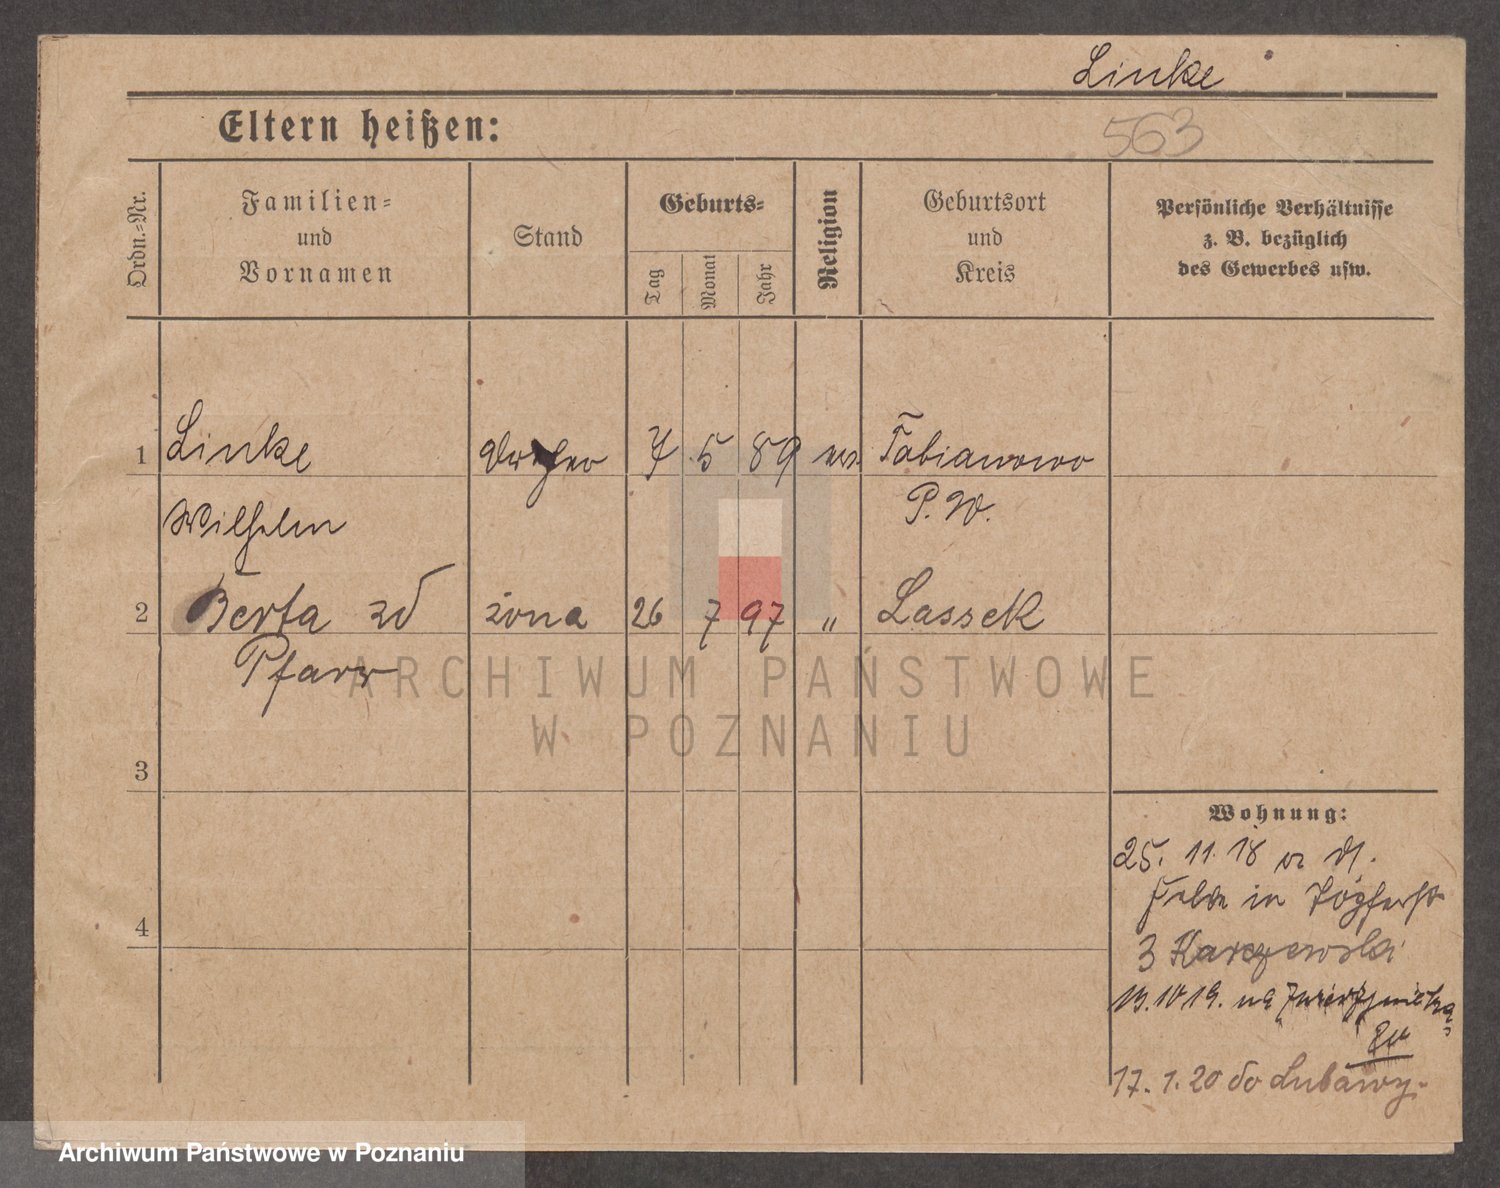 Linke
563
Eltern heißen:
Ordn.-Nr.
Familien-
und
Vornamen
Stand
Geburts-
Tag
Monat
Jahr
Religion
Geburtsort
und
Kreis
Persönliche Verhältnisse
z. B. bezüglich
des Gewerbes usw.
1 Linke 7 5 89 Fabianowo
Wilhelm P. W.
2 Berta zd żona 26 7 97 " Lassek
Pfarr
3
4
Wohnung:
25. 11. 18 v. d.
Felde in
3 Karczewski
10 19. na
17. 1. 20 do Lubawy.
ARCHIWUM PAŃSTWOWE
W POZNANIU
Archiwum Państwowe w Poznaniu